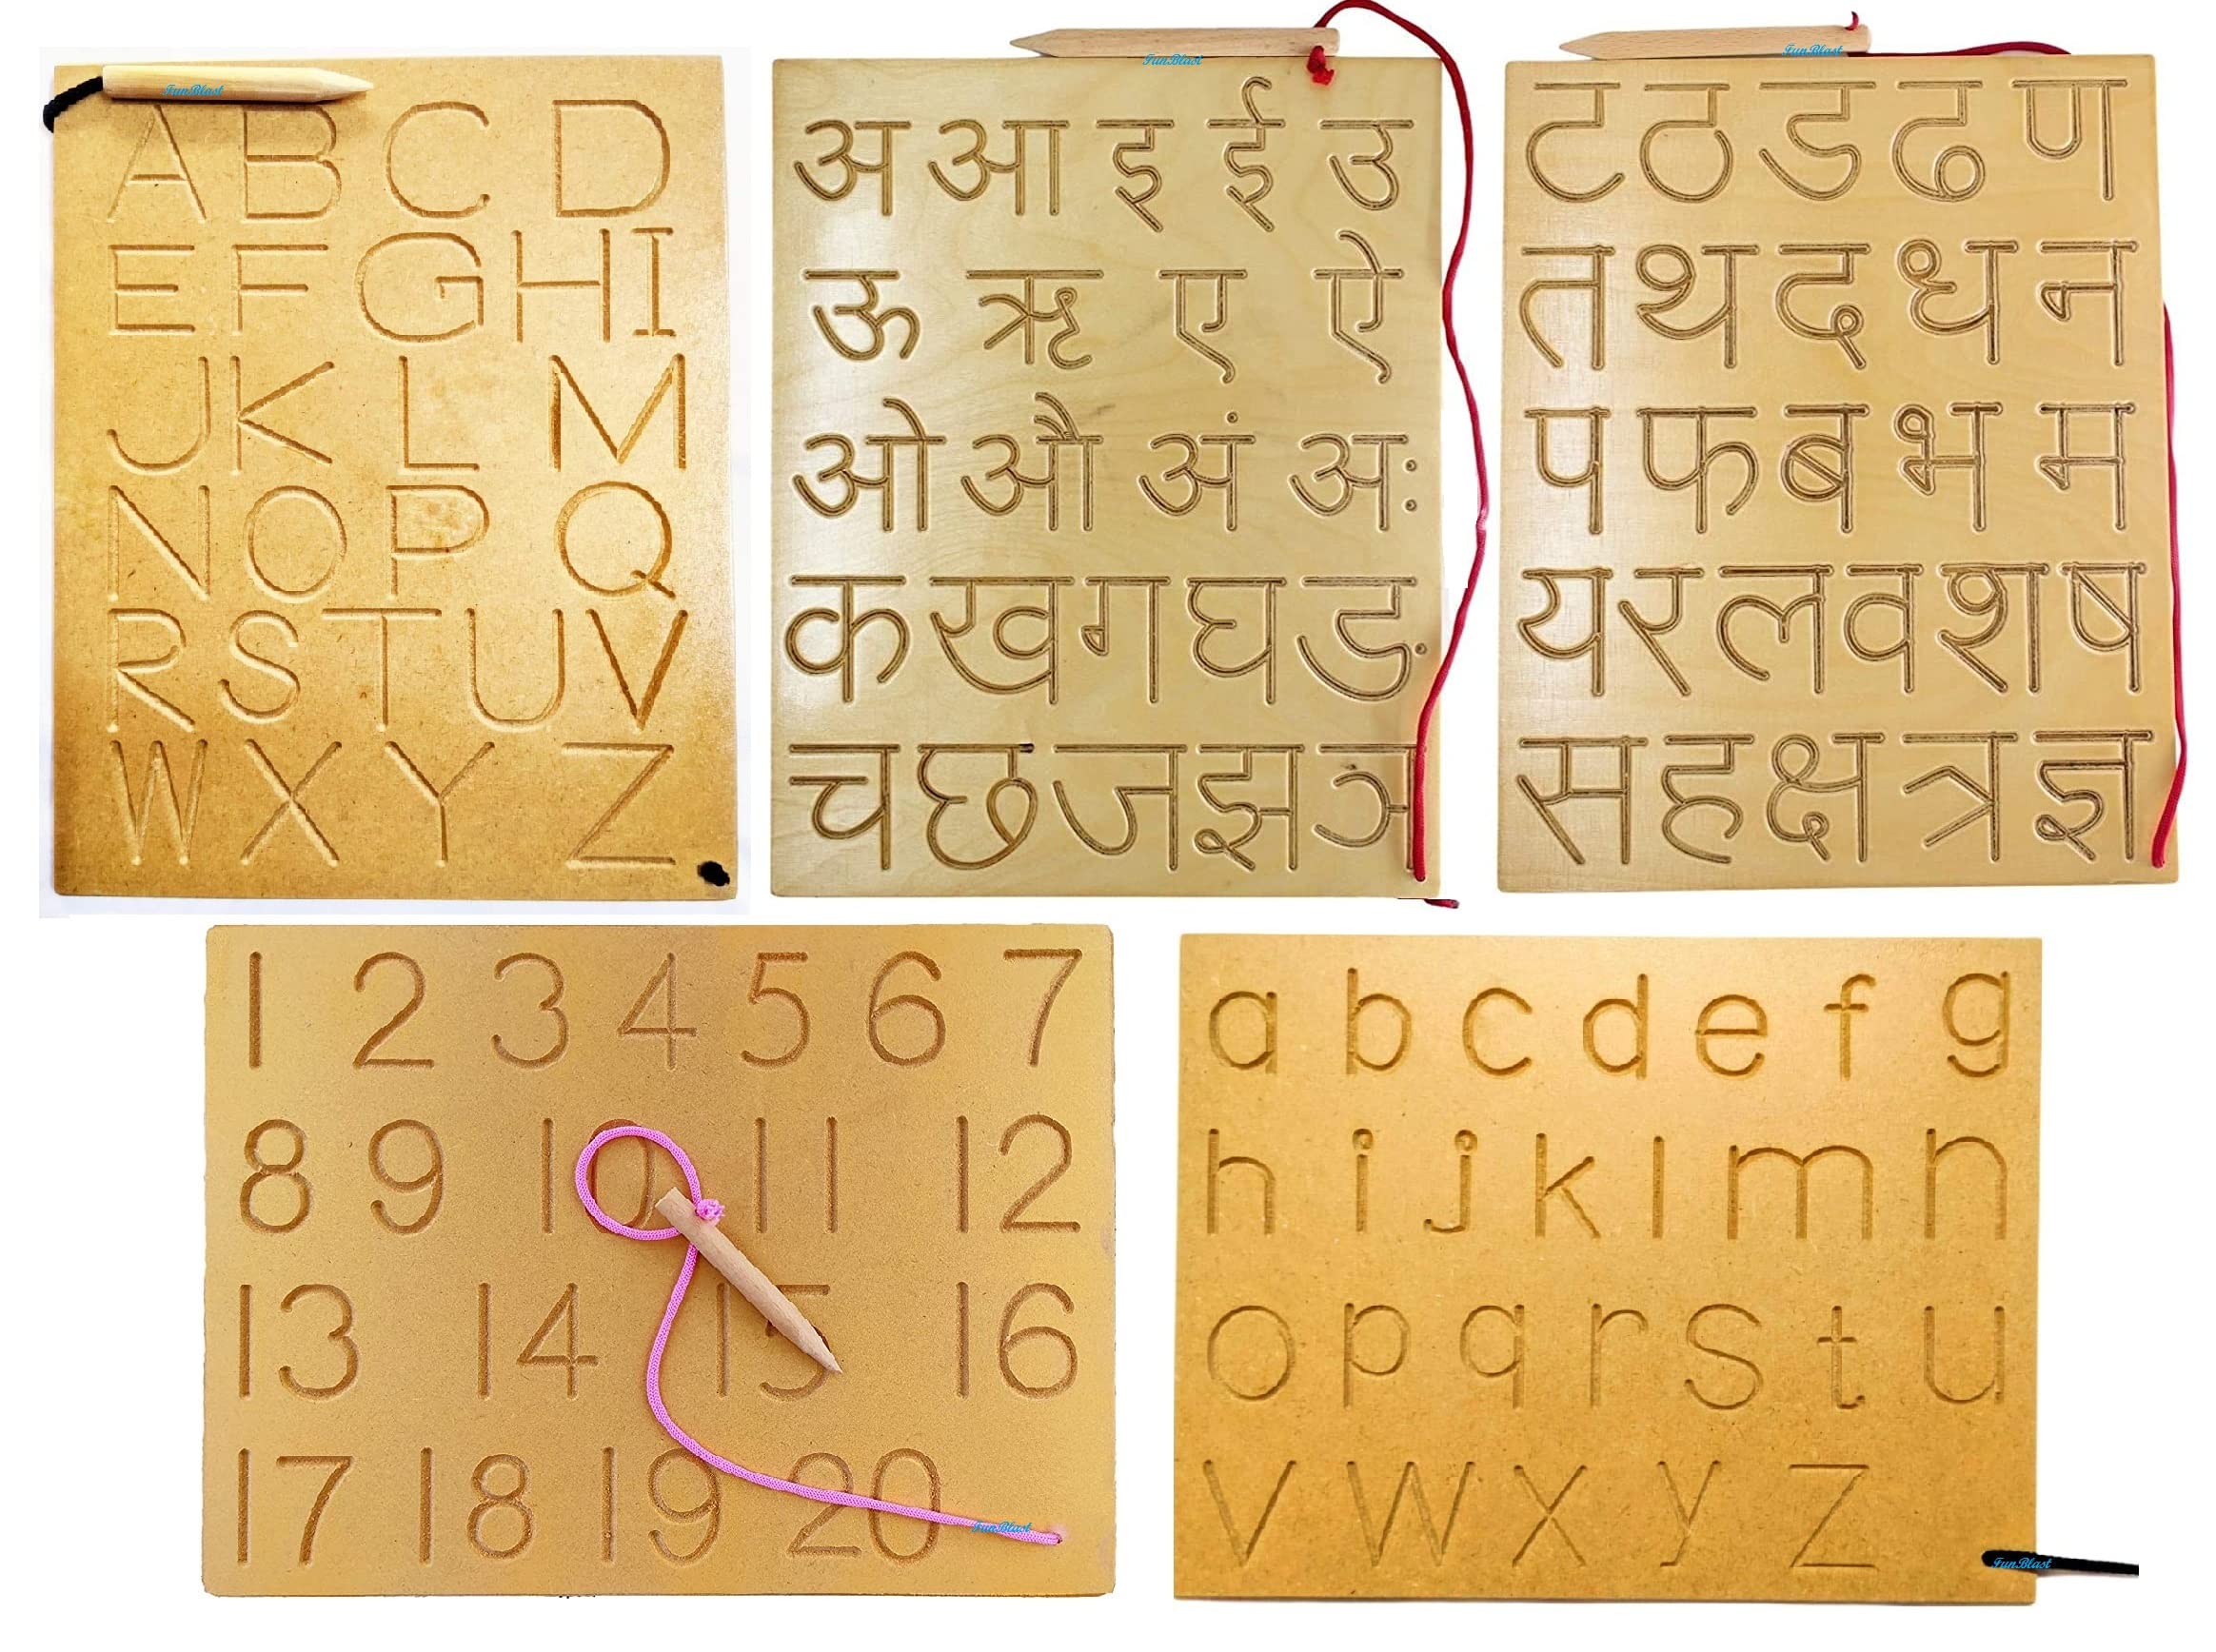 FunBlast
A B C D
E F G H I
J K L M
N O P Q
R S T U V
W X Y Z
FunBlast
अ आ इ ई उ
ऊ ऋ ए ऐ
ओ औ अं अः
क ख ग घ ङ
च छ ज झ ञ
FunBlast
ट ठ ड ढ ण
त थ द ध न
प फ ब भ म
य र ल व श ष
स ह क्ष त्र ज्ञ
1 2 3 4 5 6 7
8 9 10 11 12
13 14 15 16
17 18 19 20
FunBlast
a b c d e f g
h i j k l m n
o p q r s t u
v w x y z
FunBlast